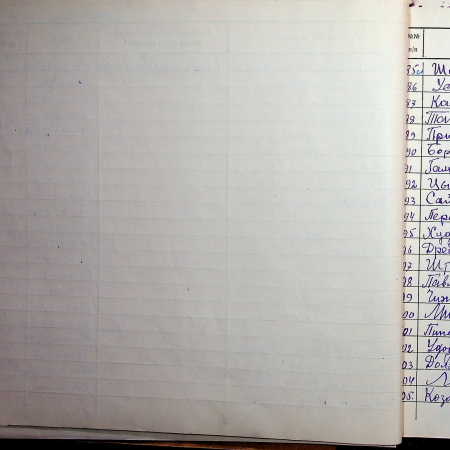 №№
п/п
85
86 Ус
87 Ка
88 Том
89 При
90 Бор
91 Гал
92 Цы
93 Сай
94 Пер
95 Худ
96 Дре
97
98 Пав
99 Чиж
00
01 Пин
02 Удо
03 Дол
04
05. Коза